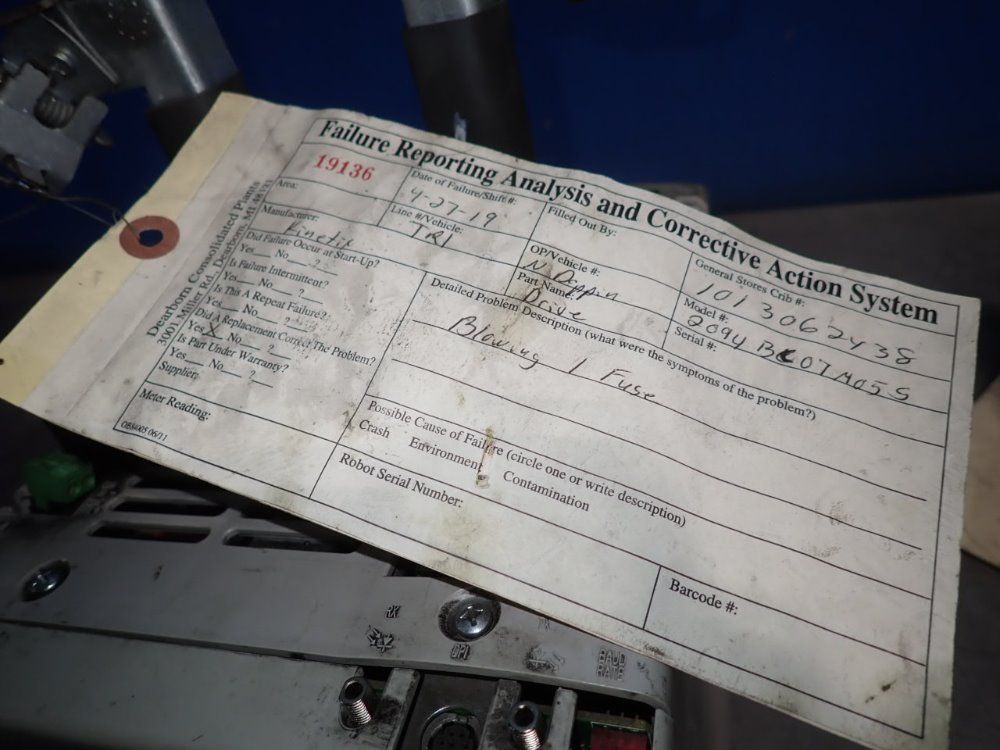 Failure Reporting Analysis and Corrective Action System
Dearborn Consolidated Plants
3001 Miller Rd., Dearborn, MI 48121
19136
Date of Failure/Shift#:
4-27-19
Filled Out By:
General Stores Crib #:
101 3062438
Area:
Line #/Vehicle:
TR1
OP/Vehicle #:
N Dippin
Model #:
2094 BC07M05S
Manufacturer:
Kinetix
Part Name:
Drive
Serial #:
Did Failure Occur at Start-Up?
Yes__ No__ ?__
Is Failure Intermittent?
Yes__ No__ ?__
Is This A Repeat Failure?
Yes__ No__ ?__
Did A Replacement Correct The Problem?
Yes X No__ ?__
Is Part Under Warranty?
Yes__ No__ ?__
Supplier:
Meter Reading:
OBM005 06/11
Detailed Problem Description (what were the symptoms of the problem?)
Blowing 1 Fuse
Possible Cause of Failure (circle one or write description)
Crash Environment Contamination
Robot Serial Number:
Barcode #:
DPI
BAUD
RATE